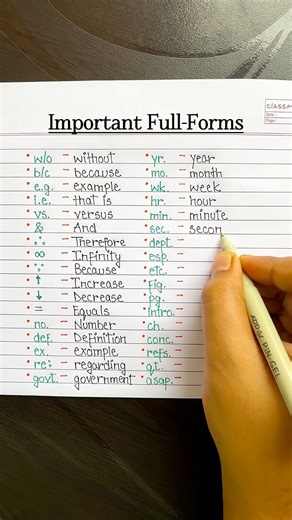 CLASSM
Date :
Page :
Important Full-Forms
• w/o – without
• b/c – because
• e.g. – example
• i.e. – that is
• vs. – versus
• & – And
• ∴ – Therefore
• ∞ – Infinity
• ∵ – Because
• ↑ – Increase
• ↓ – Decrease
• = – Equals
• no. – Number
• def. – Definition
• ex. – example
• re: – regarding
• govt. – government
• yr. – year
• mo. – month
• wk. – week
• hr. – hour
• min. – minute
• sec. – secon
• dept. –
• esp. –
• etc. –
• fig. –
• pg. –
• intro. –
• ch. –
• conc. –
• refs. –
• q.t. –
• asap. –
PIN-GEL